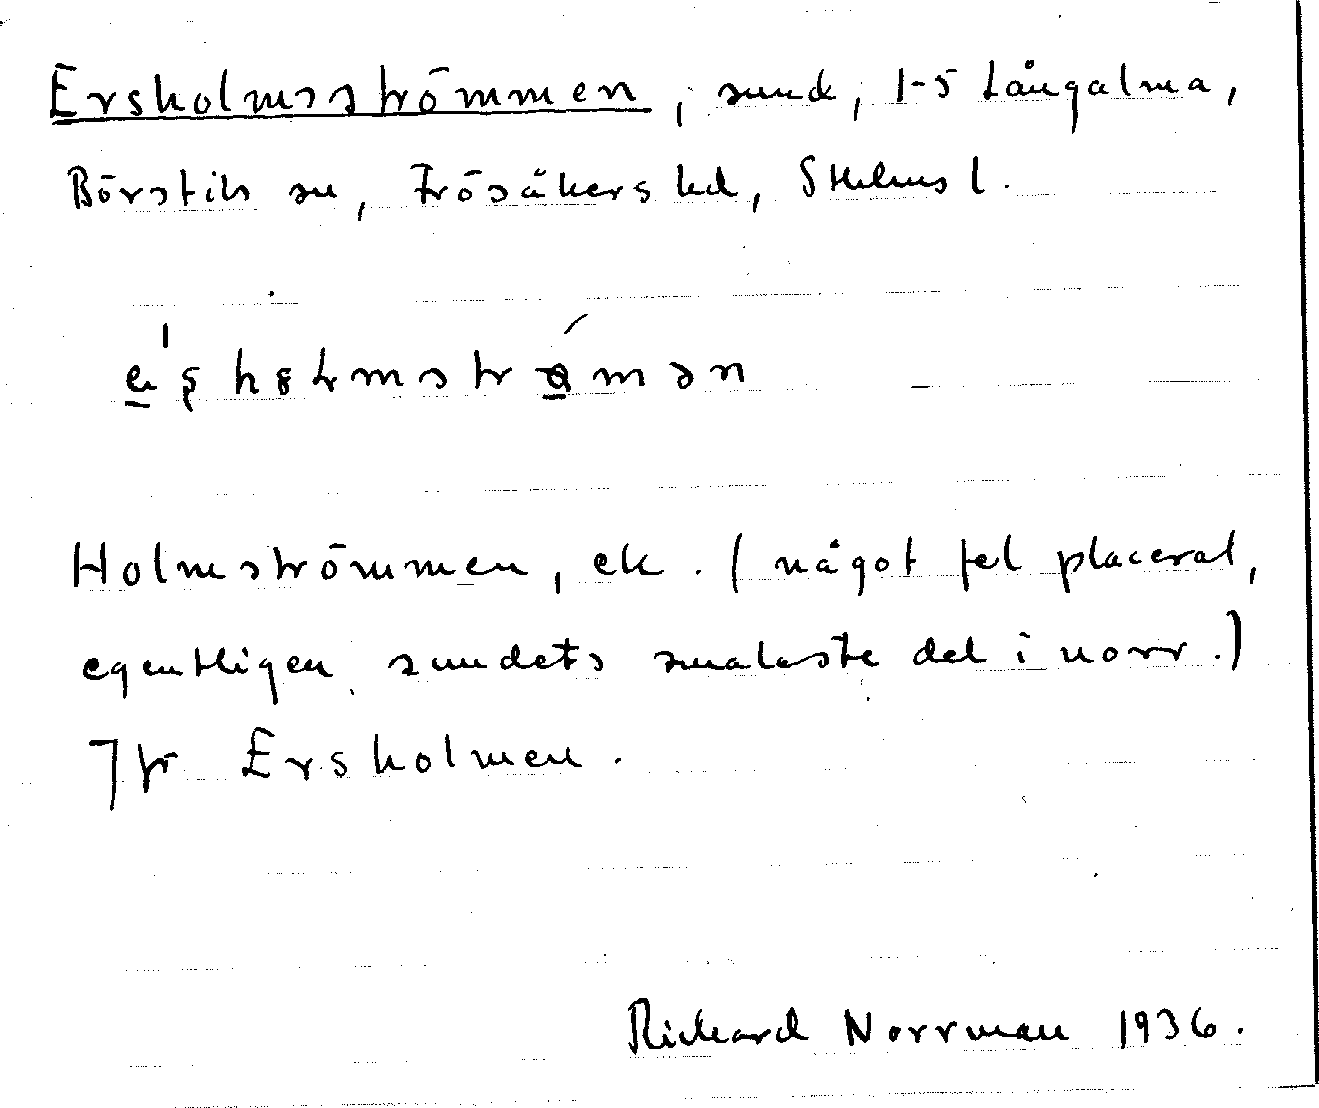 Ersholmsströmmen, sund, 1-5 Långalma,
Börstils sn, Frösåkers hd, Sthlms l.
Holmströmmen, ek. (något fel placerat,
egentligen sundets smalaste del i norr.)
Jfr Ersholmen.
Rickard Norrman 1936.